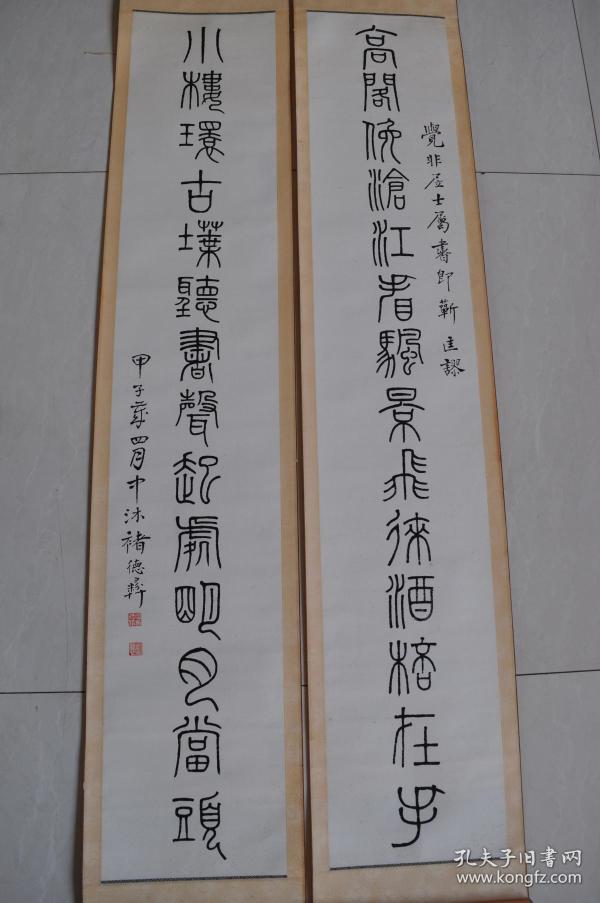 覺非居士屬書即蘄匡謬
高閣俛滄江看颿景飛徠酒桮在手
小樓環古堞聽書聲起處朙月當頭
甲子歲四月中沐褚德彝
孔夫子旧書网
www.kongfz.com